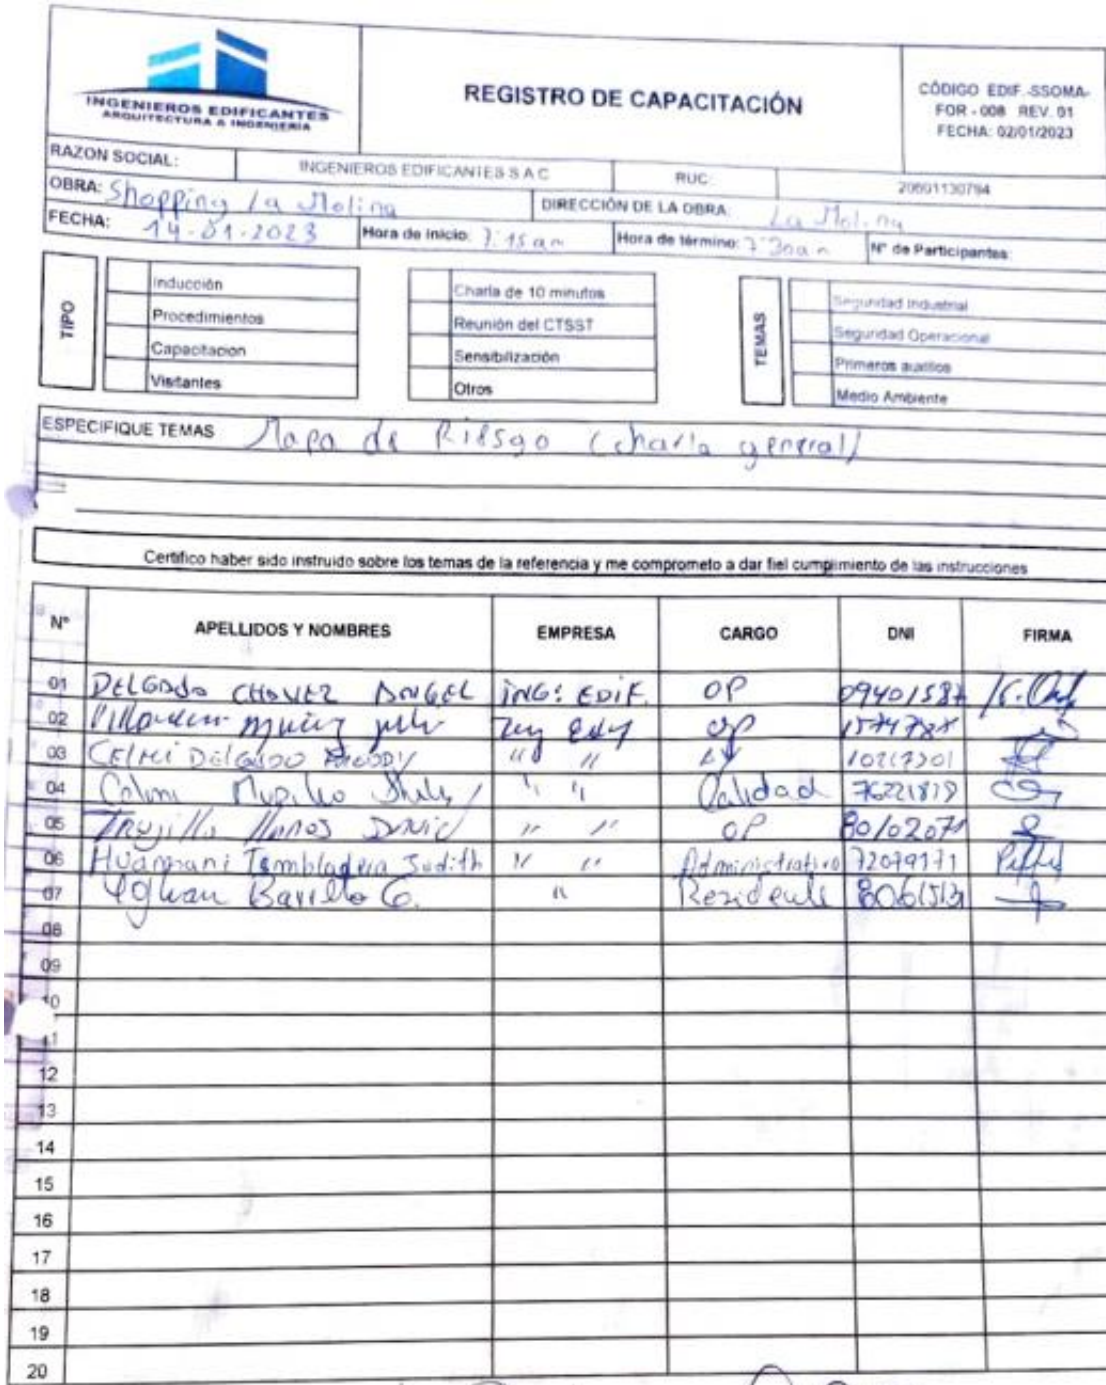 INGENIEROS EDIFICANTES
ARQUITECTURA & INGENIERIA
REGISTRO DE CAPACITACIÓN
CÓDIGO EDIF.-SSOMA-
FOR - 008 REV. 01
FECHA: 02/01/2023
RAZON SOCIAL: INGENIEROS EDIFICANTES S A C RUC: 20601130794
OBRA: Shopping La Molina DIRECCIÓN DE LA OBRA: La Molina
FECHA: 14-01-2023 Hora de Inicio: 7:15 am Hora de término: 7:30 am N° de Participantes:
TIPO
Inducción
Procedimientos
Capacitacion
Visitantes
Charla de 10 minutos
Reunión del CTSST
Sensibilización
Otros
TEMAS
Seguridad Industrial
Seguridad Operacional
Primeros auxilios
Medio Ambiente
ESPECIFIQUE TEMAS Mapa de Riesgo (charla general)
Certifico haber sido instruido sobre los temas de la referencia y me comprometo a dar fiel cumplimiento de las instrucciones
N° APELLIDOS Y NOMBRES EMPRESA CARGO DNI FIRMA
01 DELGADO CHAVEZ ANGEL ING: EDIF. OP
02 OP
03 CELMI DELGADO " "
04 " " Calidad
05 Trujillo llanos David " " OP
06 Huamani Tembladera Judith " " Administrativo 72079171
07 " Residente
08
09
10
11
12
13
14
15
16
17
18
19
20